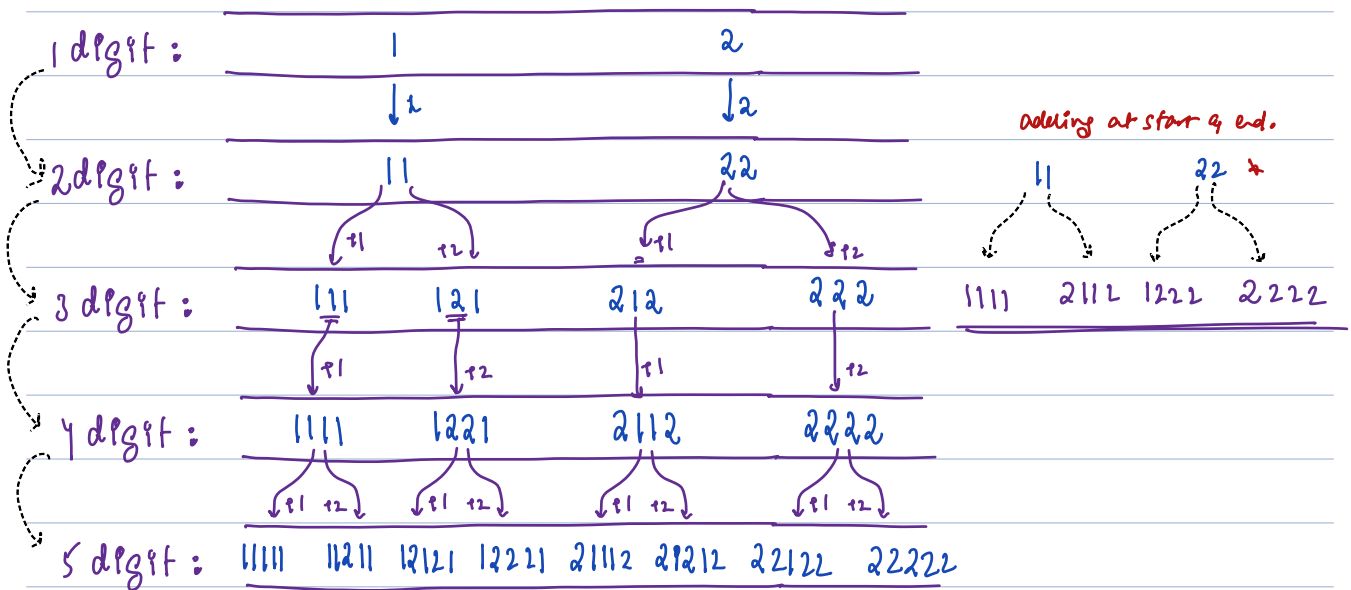 1 digit : 1 2
2 2
adding at start & end.
2 digit : 11 22 11 22 *
+1 +2 +1 +2
3 digit : 111 121 212 222 1111 2112 1222 2222
+1 +2 +1 +2
4 digit : 1111 1221 2112 2222
+1 +2 +1 +2 +1 +2 +1 +2
5 digit : 11111 11211 12121 12221 21112 21212 22122 22222